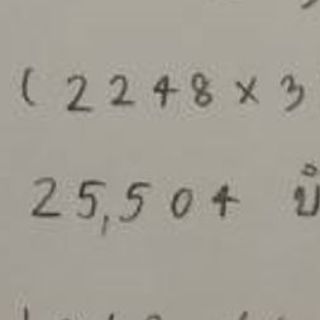 ( 2248 × 3
25,504